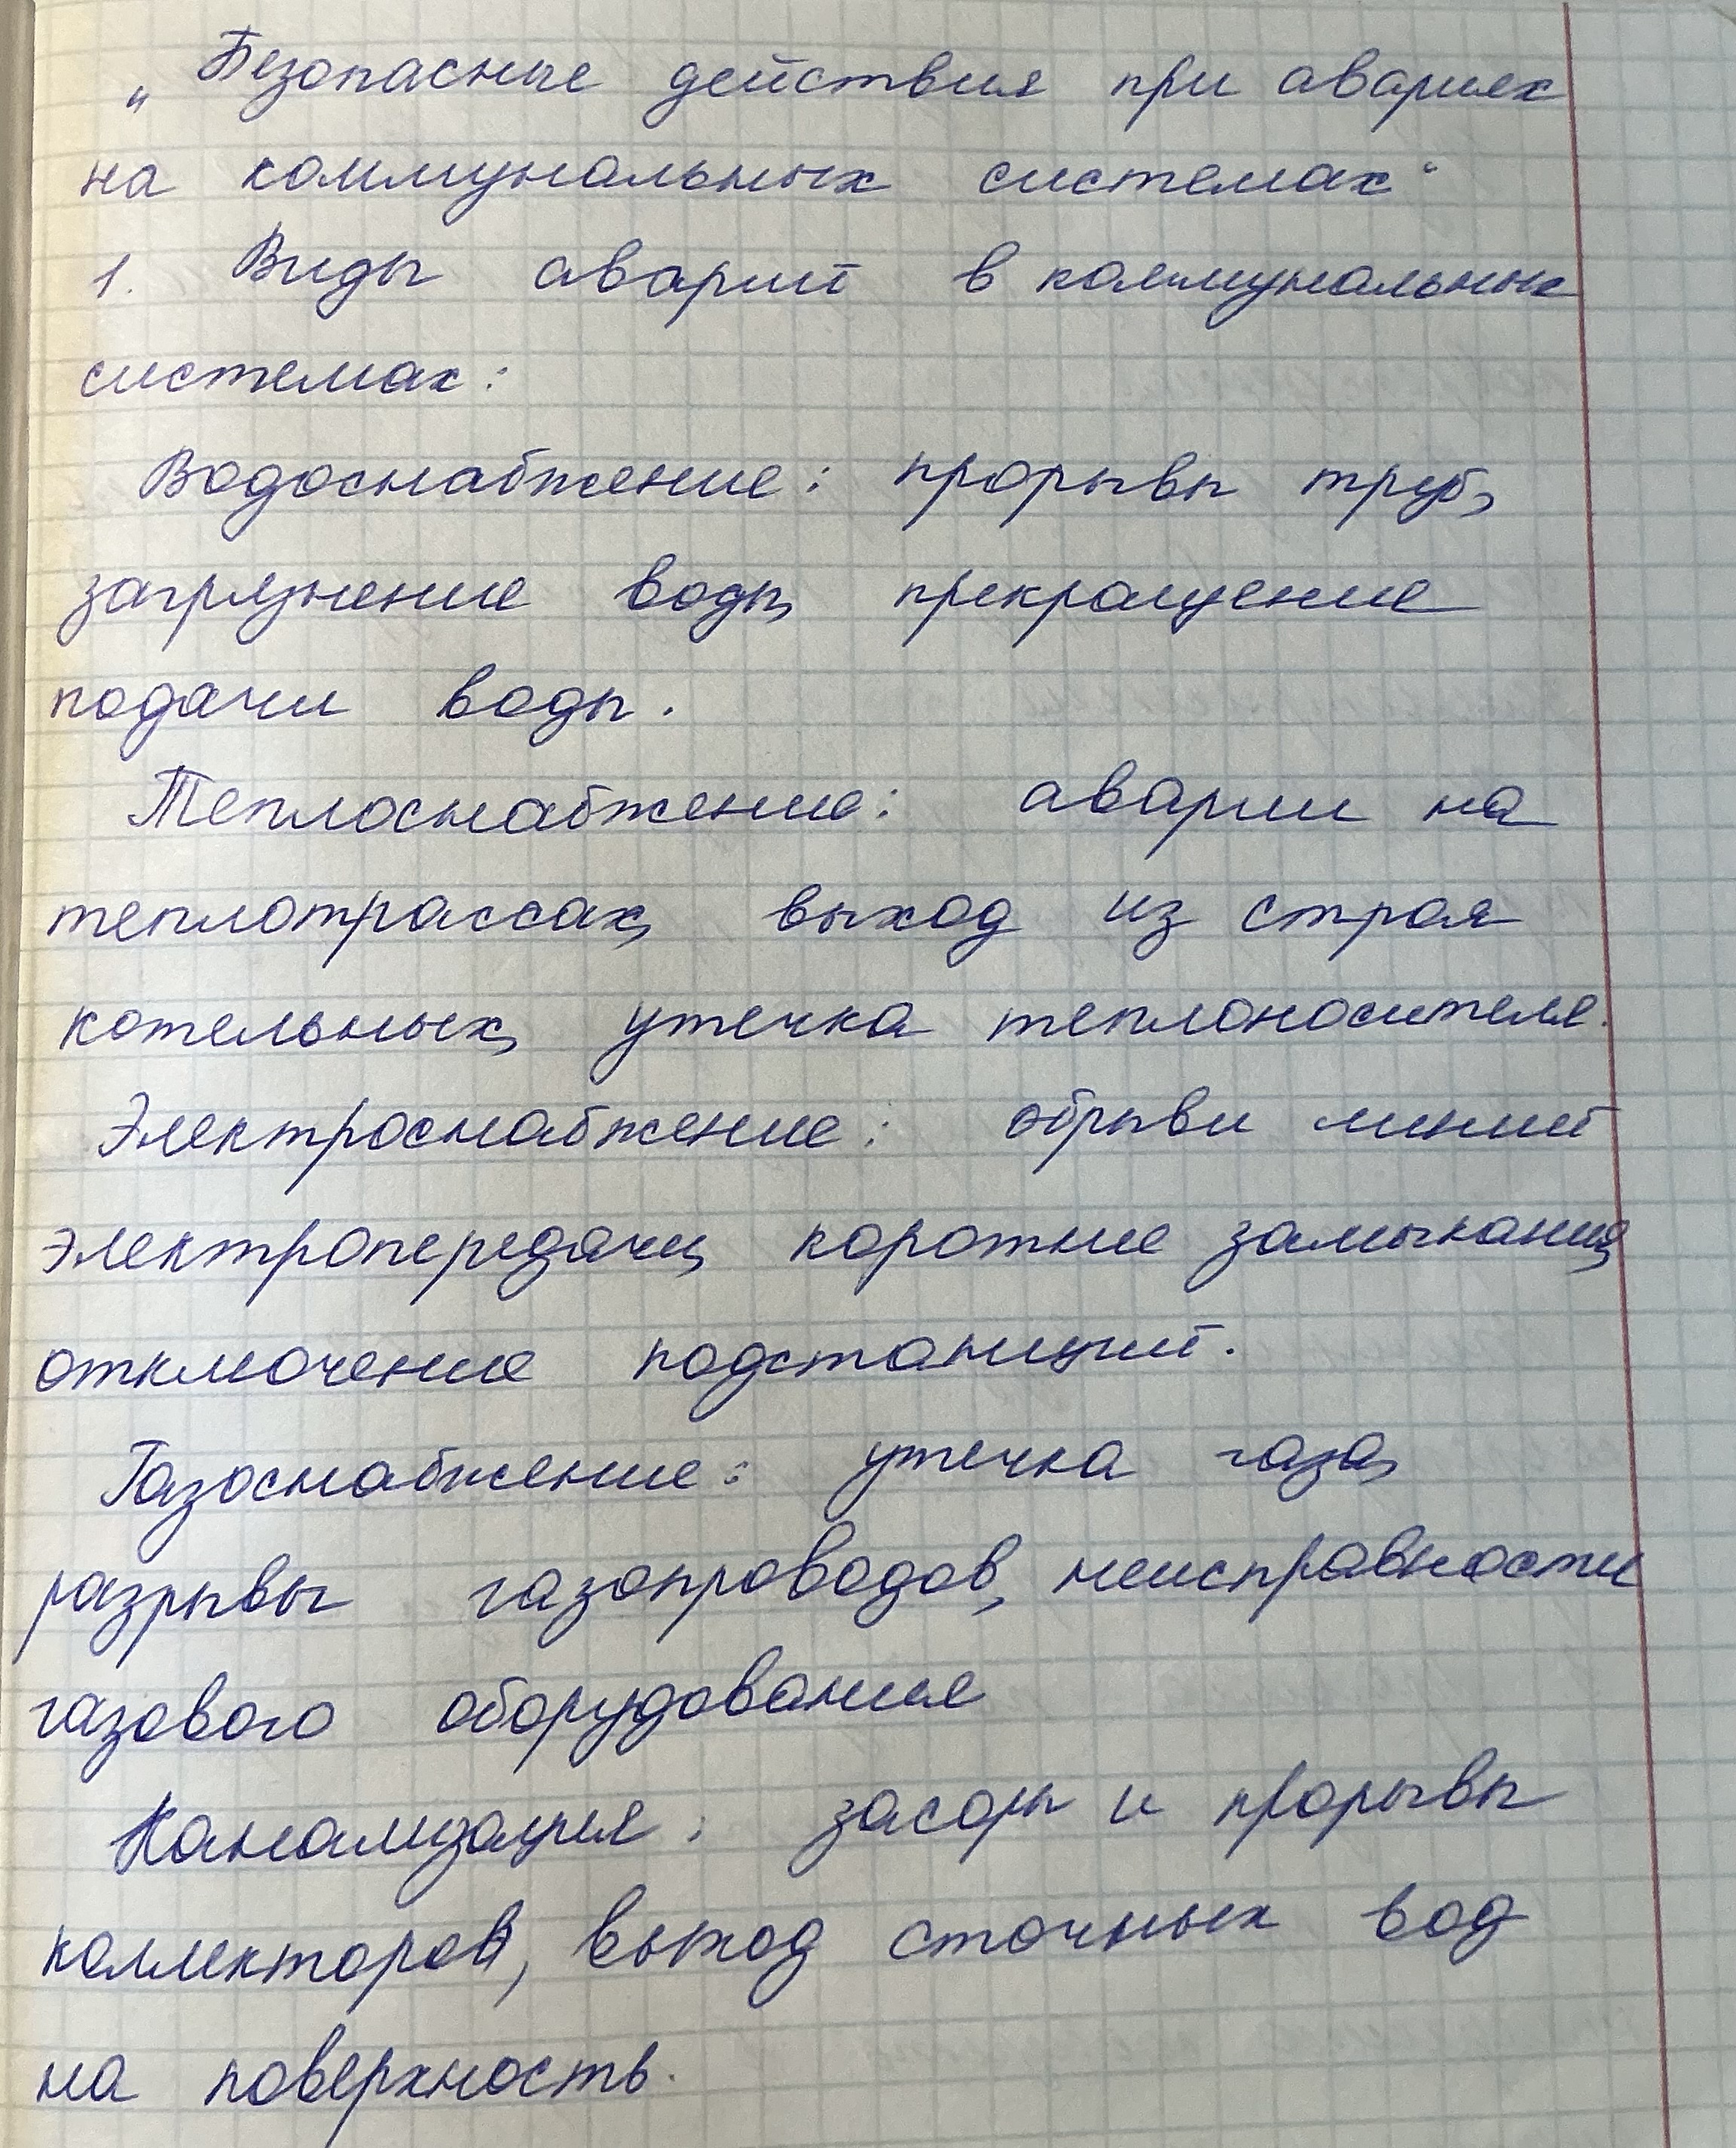 „Безопасные действия при авариях
на коммунальных системах“
1. Виды аварий в коммунальных
системах:
Водоснабжение: прорывы труб,
загрязнение воды, прекращение
подачи воды.
Теплоснабжение: аварии на
теплотрассах, выход из строя
котельных, утечка теплоносителя.
Электроснабжение: обрывы линий
электропередачи, короткие замыкания,
отключение подстанций.
Газоснабжение: утечка газа,
разрывы газопроводов, неисправности
газового оборудования
Канализация: засоры и прорывы
коллекторов, выход сточных вод
на поверхность.